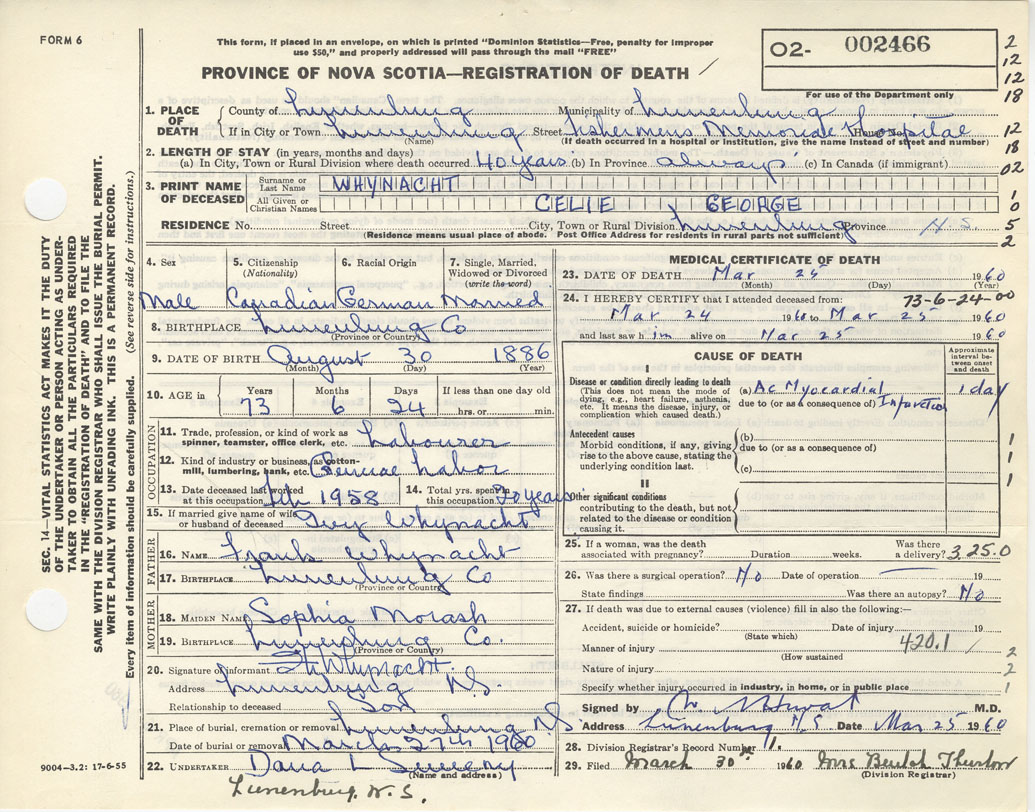 FORM 6
This form, if placed in an envelope, on which is printed "Dominion Statistics—Free, penalty for improper
use $50," and properly addressed will pass through the mail "FREE"
PROVINCE OF NOVA SCOTIA—REGISTRATION OF DEATH
02- 002466
For use of the Department only
2
12
12
18
12
18
02
1
0
5
2
1. PLACE OF DEATH
County of Lunenburg Municipality of Lunenburg
If in City or Town Lunenburg Street Fishermens Memorial Hospital House No.
(Name) (If death occurred in a hospital or institution, give the name instead of street and number)
2. LENGTH OF STAY (in years, months and days)
(a) In City, Town or Rural Division where death occurred 40 years (b) In Province always (c) In Canada (if immigrant)
3. PRINT NAME OF DECEASED
Surname or Last Name WHYNACHT
All Given or Christian Names CELIE GEORGE
RESIDENCE No. Street City, Town or Rural Division Lunenburg Province N.S
(Residence means usual place of abode. Post Office Address for residents in rural parts not sufficient)
4. Sex Male
5. Citizenship (Nationality) Canadian
6. Racial Origin German
7. Single, Married, Widowed or Divorced (write the word) Married
8. BIRTHPLACE Lunenburg Co
(Province or Country)
9. DATE OF BIRTH August 30 1886
(Month) (Day) (Year)
10. AGE in Years 73 Months 6 Days 24 If less than one day old hrs. or min.
OCCUPATION
11. Trade, profession, or kind of work as spinner, teamster, office clerk, etc. Labourer
12. Kind of industry or business, as cotton-mill, lumbering, bank, etc. Labor
13. Date deceased last worked at this occupation 1958
14. Total yrs. spent in this occupation 20 years
15. If married give name of wife or husband of deceased Whynacht
FATHER
16. NAME Frank Whynacht
17. BIRTHPLACE Lunenburg Co
(Province or Country)
MOTHER
18. MAIDEN NAME Sophia Morash
19. BIRTHPLACE Lunenburg Co.
(Province or Country)
20. Signature of informant Whynacht.
Address Lunenburg N.S.
Relationship to deceased Son
21. Place of burial, cremation or removal Lunenburg NS
Date of burial or removal March 27th 1960
22. UNDERTAKER Dana L Sweeny
(Name and address)
Lunenburg, N.S.
MEDICAL CERTIFICATE OF DEATH
23. DATE OF DEATH Mar 25 1960
(Month) (Day)
24. I HEREBY CERTIFY that I attended deceased from: 73-6-24-00
Mar 24 1960 to Mar 25 1960
and last saw him alive on Mar 25 1960
CAUSE OF DEATH
Approximate interval between onset and death
I
Disease or condition directly leading to death
(This does not mean the mode of dying, e.g., heart failure, asthenia, etc. It means the disease, injury, or complication which caused death.)
(a) Ac Myocardial Infarction 1 day
due to (or as a consequence of)
Antecedent causes
Morbid conditions, if any, giving rise to the above cause, stating the underlying condition last.
(b)
due to (or as a consequence of)
(c)
1
1
1
II
Other significant conditions
contributing to the death, but not related to the disease or condition causing it.
25. If a woman, was the death associated with pregnancy? Duration weeks. Was there a delivery? 325.0
26. Was there a surgical operation? No Date of operation 19
State findings Was there an autopsy? No
27. If death was due to external causes (violence) fill in also the following:—
Accident, suicide or homicide? Date of injury 19
(State which)
Manner of injury 420.1
(How sustained)
Nature of injury
Specify whether injury occurred in industry, in home, or in public place
2
2
1
Signed by M.D.
Address Lunenburg N.S Date Mar 25 1960
28. Division Registrar's Record Number 11.
29. Filed March 30th 1960 Mrs Beulah Thurlow
(Division Registrar)
SEC. 14—VITAL STATISTICS ACT MAKES IT THE DUTY
OF THE UNDERTAKER OR PERSON ACTING AS UNDER-
TAKER TO OBTAIN ALL THE PARTICULARS REQUIRED
IN THE "REGISTRATION OF DEATH" AND TO FILE THE
SAME WITH THE DIVISION REGISTRAR WHO SHALL ISSUE THE BURIAL PERMIT.
WRITE PLAINLY WITH UNFADING INK. THIS IS A PERMANENT RECORD.
Every item of information should be carefully supplied. (See reverse side for instructions.)
9004—3.2: 17-6-55